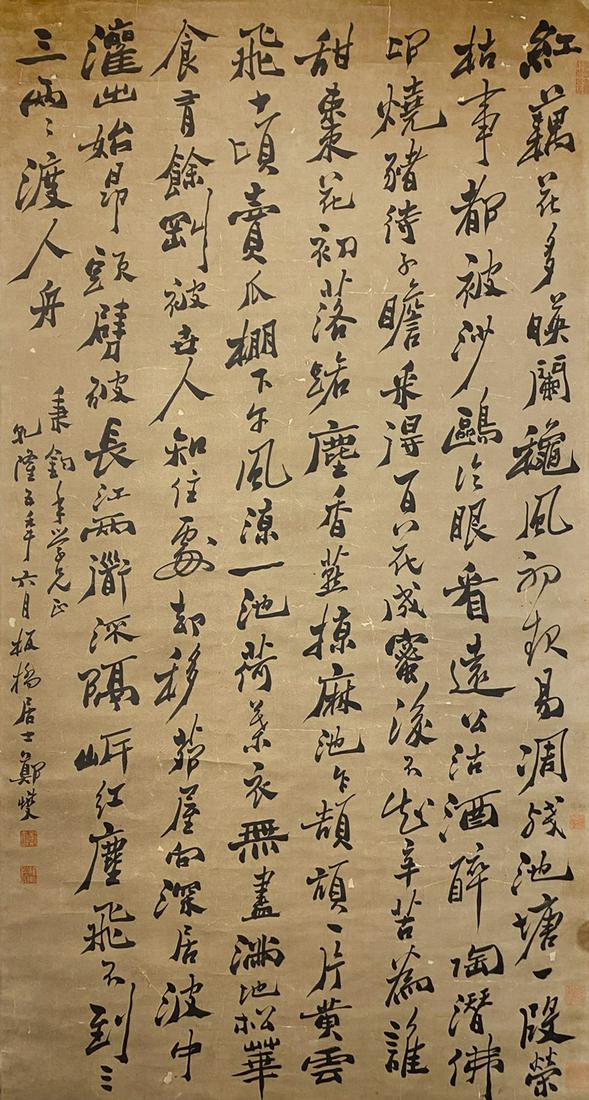 紅藕花多映闌龝風初起易凋殘池塘一段榮
枯事都被沙鷗冷眼看遠公沽酒醉陶潛佛
印燒豬待子瞻采得百花成蜜後不知辛苦為誰
甜棗花初落路塵香燕掠麻池乍頡頏一片黃雲
飛十頃賣瓜棚下午風涼一池荷葉衣無盡滿地松華
食有餘剛被世人知住處却移茆屋向深居波中
灌出始昂頭劈破長江兩深隔岍紅塵飛不到三
三兩々渡人舟
秉鈞年學兄正
乾隆五年六月板橋居士鄭燮